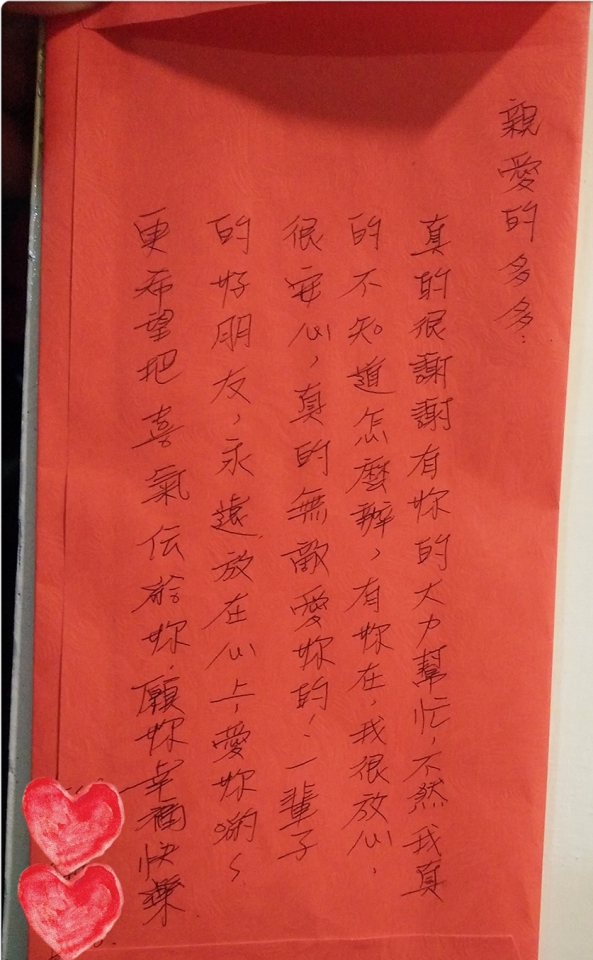 親愛的多多：
真的很謝謝有妳的大力幫忙，不然我真
的不知道怎麼辦，有妳在，我很放心，
很安心，真的無敵愛妳的！一輩子
的好朋友，永遠放在心上，愛妳喲～
更希望把喜氣伝給妳，願妳幸福快樂